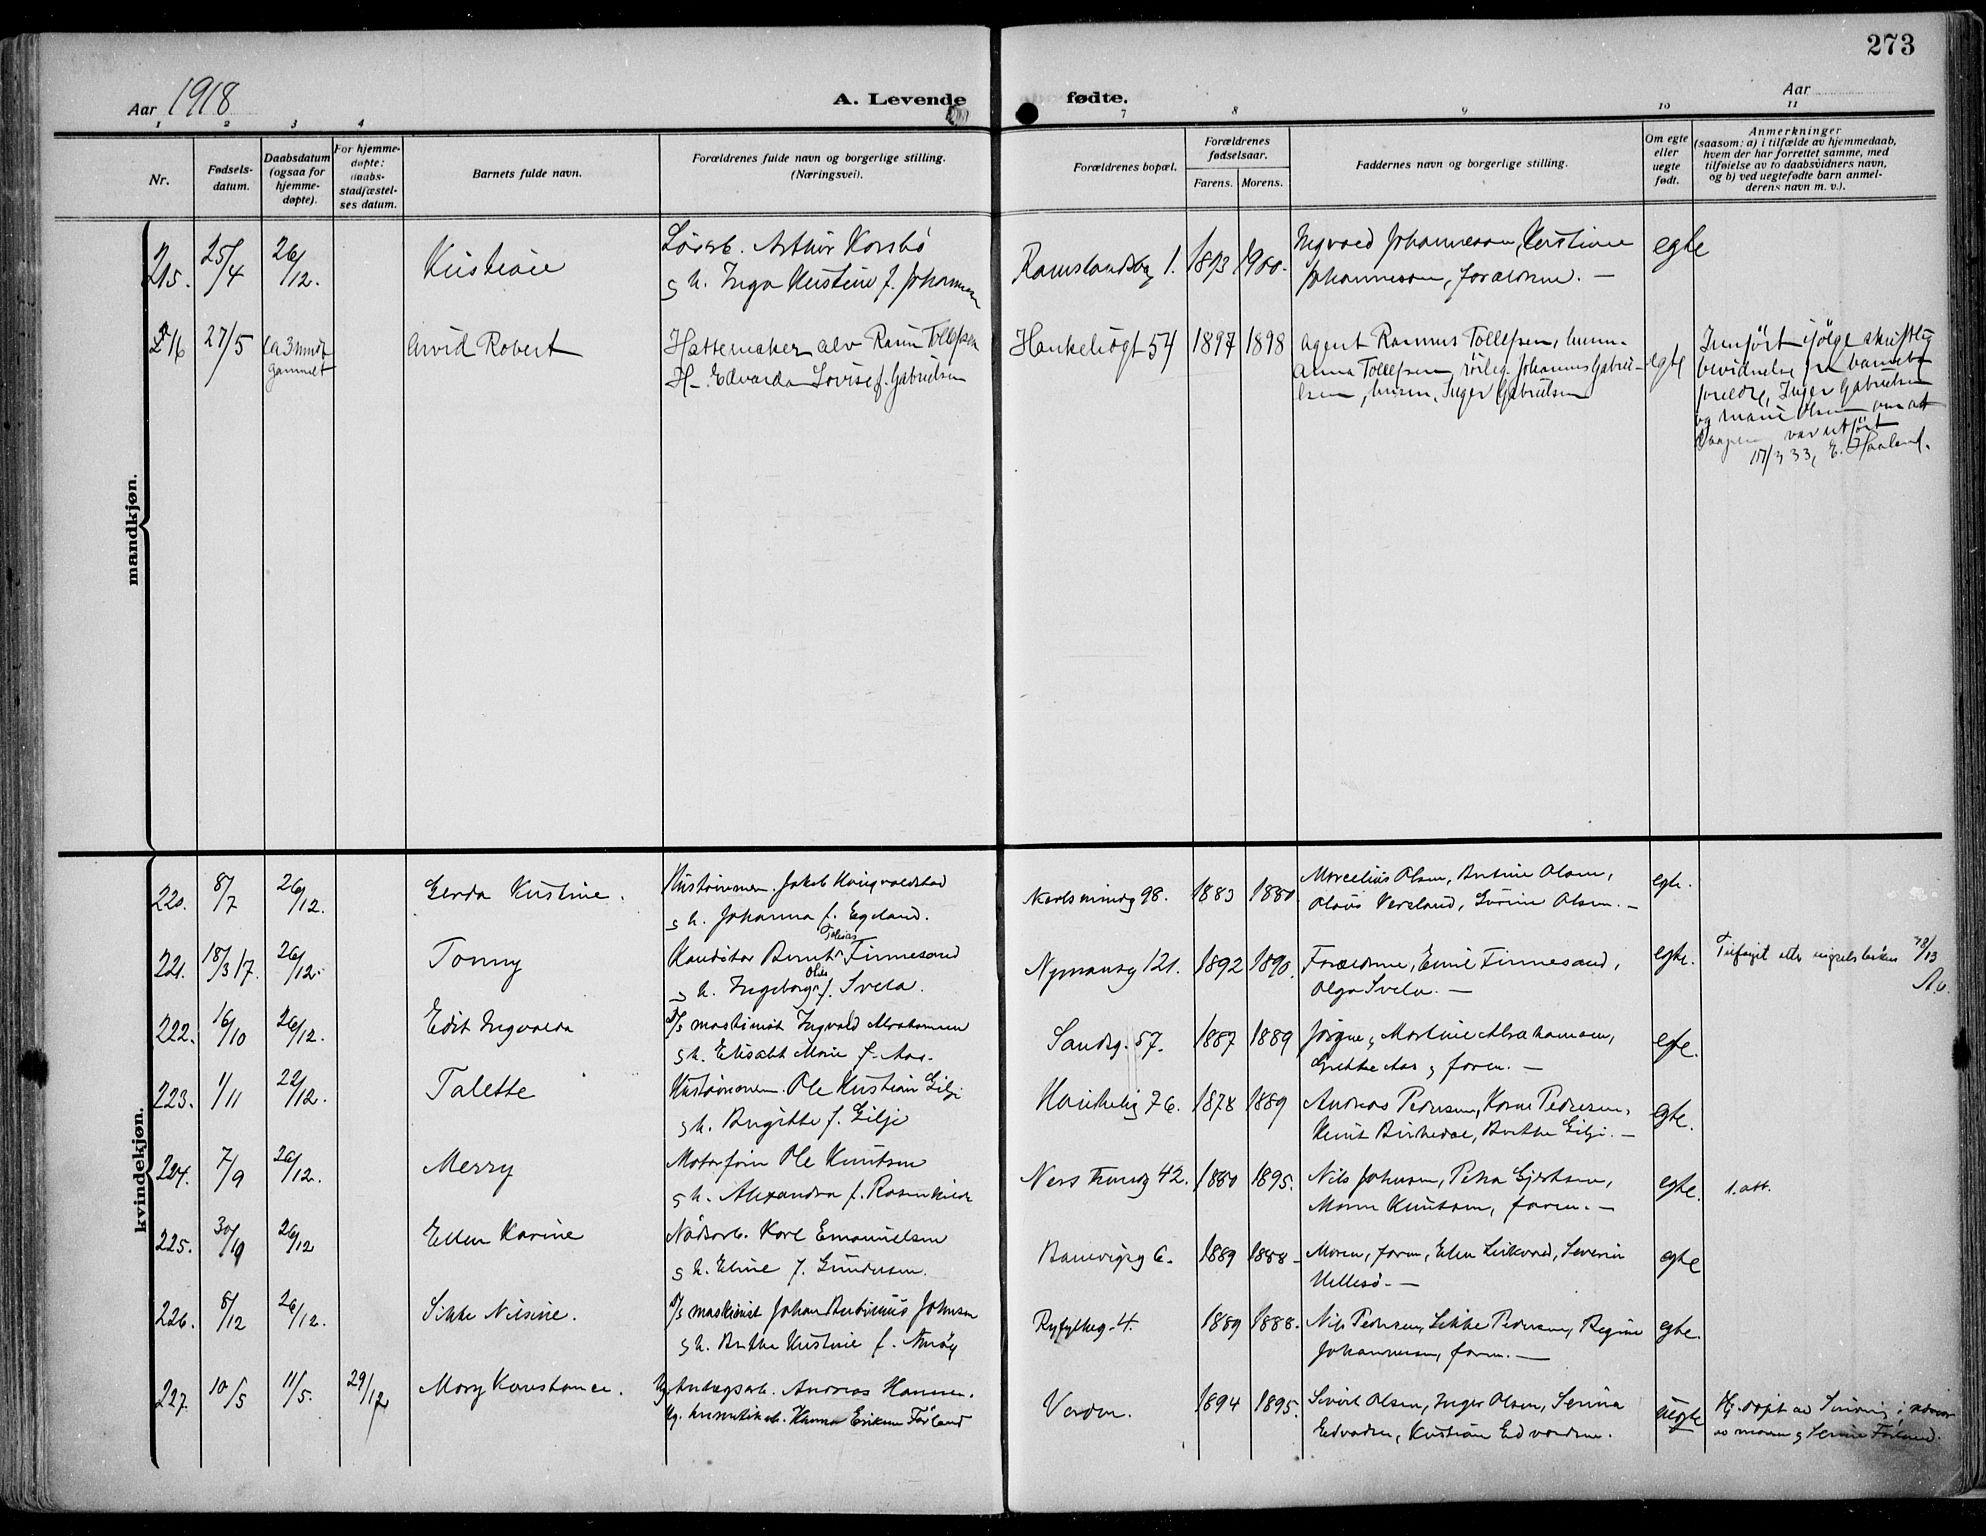 273
Aar 1918
A. Levende fødte.
Aar
1 2 3 4 7 8 9 10 11
Nr.
Fødsels-
datum.
Daabsdatum
(ogsaa for
hjemme-
døpte).
For hjemme-
døpte:
daabs-
stadfæstel-
ses datum.
Barnets fulde navn.
Forældrenes fulde navn og borgerlige stilling.
(Næringsvei).
Forældrenes bopæl.
Forældrenes
fødselsaar.
Farens. Morens.
Faddernes navn og borgerlige stilling.
Om egte
eller
uegte
født.
Anmerkninger
(saasom: a) i tilfælde av hjemmedaab,
hvem der har forrettet samme, med
tilføielse av to daabsvidners navn,
og b) ved uegtefødte barn anmel-
derens navn m. v.).
mandkjøn.
215. 25/4 26/12. Kristiane
Arthur Korsbø
s h. Inga Kristine f. Johannesen
Ramslandsbg 1. 1893 1900.
Ingvald Johannesen, Kristiane
Johannesen, forældrene. —
egte
216 27/5 ca 3 mndr
gammel
Arvid Robert
Hattemaker alv Rasm Tollefsen
H— Edvarda Lovise f. Gabrielsen
Haukeligt 54 1897 1898
Agent Rasmus Tollefsen, husm.
Anna Tollefsen, Johannes Gabriel-
sen, husm. Inger Gabrielsen
egte
Innført ifølge skriftlig
bevidnelse fra barnets
foreldre, Inger Gabrielsen
og Marie Olsen om at
daapen var utført
17/3 33, E. Haaland.
kvindekjøn.
220. 8/7 26/12. Gerda Kristine.
Jakob
s h. Johanna f. Egeland.
Karlsmindg 98. 1883 1880.
Marcelius Olsen, Bertine Olsen,
Olaus Verland, Olsen. —
egte.
221. 18/3 17. 26/12. Tonny
Tobias
Konditor Bernt Finnesand
Olis
s h. Ingeborg f. Svela.
Nymansg 121. 1892 1890.
Forældrene, Emil Finnesand,
Olga Svela. —
egte.
222. 16/10 26/12. Edit Ingvalda
D/s maskinist Ingvald Abrahamsen
s h. Elisabt Marie f. Aas.
Sandsg. 57. 1887 1889
Jørgine, Martine Abrahamsen,
Grethe Aas, foren. —
egte.
223. 1/11 22/12. Talette
Ole Kristian Gilje
s h. Birgitte f. Gilje
Haukelig 76. 1878 1889
Andreas Pedersen, Karen Pedersen,
Knut Birkedal, Berthe Gilje. —
egte.
224. 7/9 26/12. Merry
Motorfører Ole Knutsen
s h. Alexandra f. Rosenkilde
Nerstrandg 42. 1880 1895.
Nils Johnsen, Petra Gjertsen,
Maren Knutsen, foren. —
egte.
1. att.
225. 30/9 26/12 Ellen Karine
Karl Emanuelsen
s h. Eline f. Gundersen.
Banevigsg 6. 1889 1888.
Moren, foren, Elen, Severin
Hillesø. —
egte
226. 8/12 26/12. Sikke Nilsine.
D/s maskinist Johan Johnsen
s h. Berthe Kristine f.
Ryfylkeg. 4. 1889 1888.
Nils Pedersen, Sikke Pedersen, Regine
Johannesen, foren. —
egte.
227. 10/5 11/5. 29/12 Mary Konstance.
Ug. Anlægsarb. Andreas Hansen.
Ug. Hanna Eriksen Førland
1894 1895.
Sivert Olsen, Inger Olsen, Serina
Edvardsen, Kristian Edvardsen.
uegte
Hj. døpt av
av moren og Serine Førland.